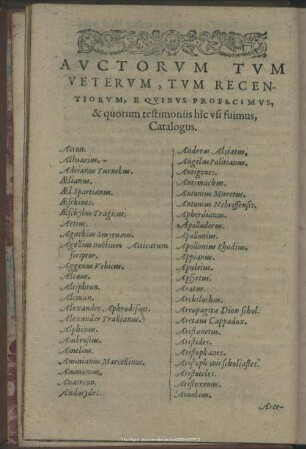 AVCTORVM TVM
VETERVM, TVM RECEN-
TIORVM, E QVIBVS PROFECIMVS,
& quorum testimoniis hîc vsi fuimus,
Catalogus.
Accon.
Actuarius.
Adrianus Turnebus.
Ælianus.
Æl. Spartianus.
Æschines.
Æschylus Tragicus.
Aetius.
Agathias Smyrnæus.
Agellius noctium Atticarum
scriptor.
Aggenus Vrbicus.
Alcæus.
Alciphron.
Alcman.
Alexander Aphrodisæus.
Alexander Trallianus.
Alphenus.
Ambrosius.
Amelius.
Ammianus Marcellinus.
Ammonius.
Anacreon.
Andocides.
Andreas Alciatus.
Angelus Politianus.
Antigenes.
Antimachus.
Antonius Muretus.
Antonius Nebrissensis.
Apherdianus.
Apollodorus.
Apollonius.
Apollonius Rhodius.
Appianus.
Apuleius.
Apsyrtus.
Aratus.
Archilochus.
Areopagitæ Dion schol.
Aretæus Cappadox.
Aristænetus.
Aristides.
Aristophanes.
Aristophanis scholiastes.
Aristoteles.
Aristoxenus.
Arnobius.
Arte-